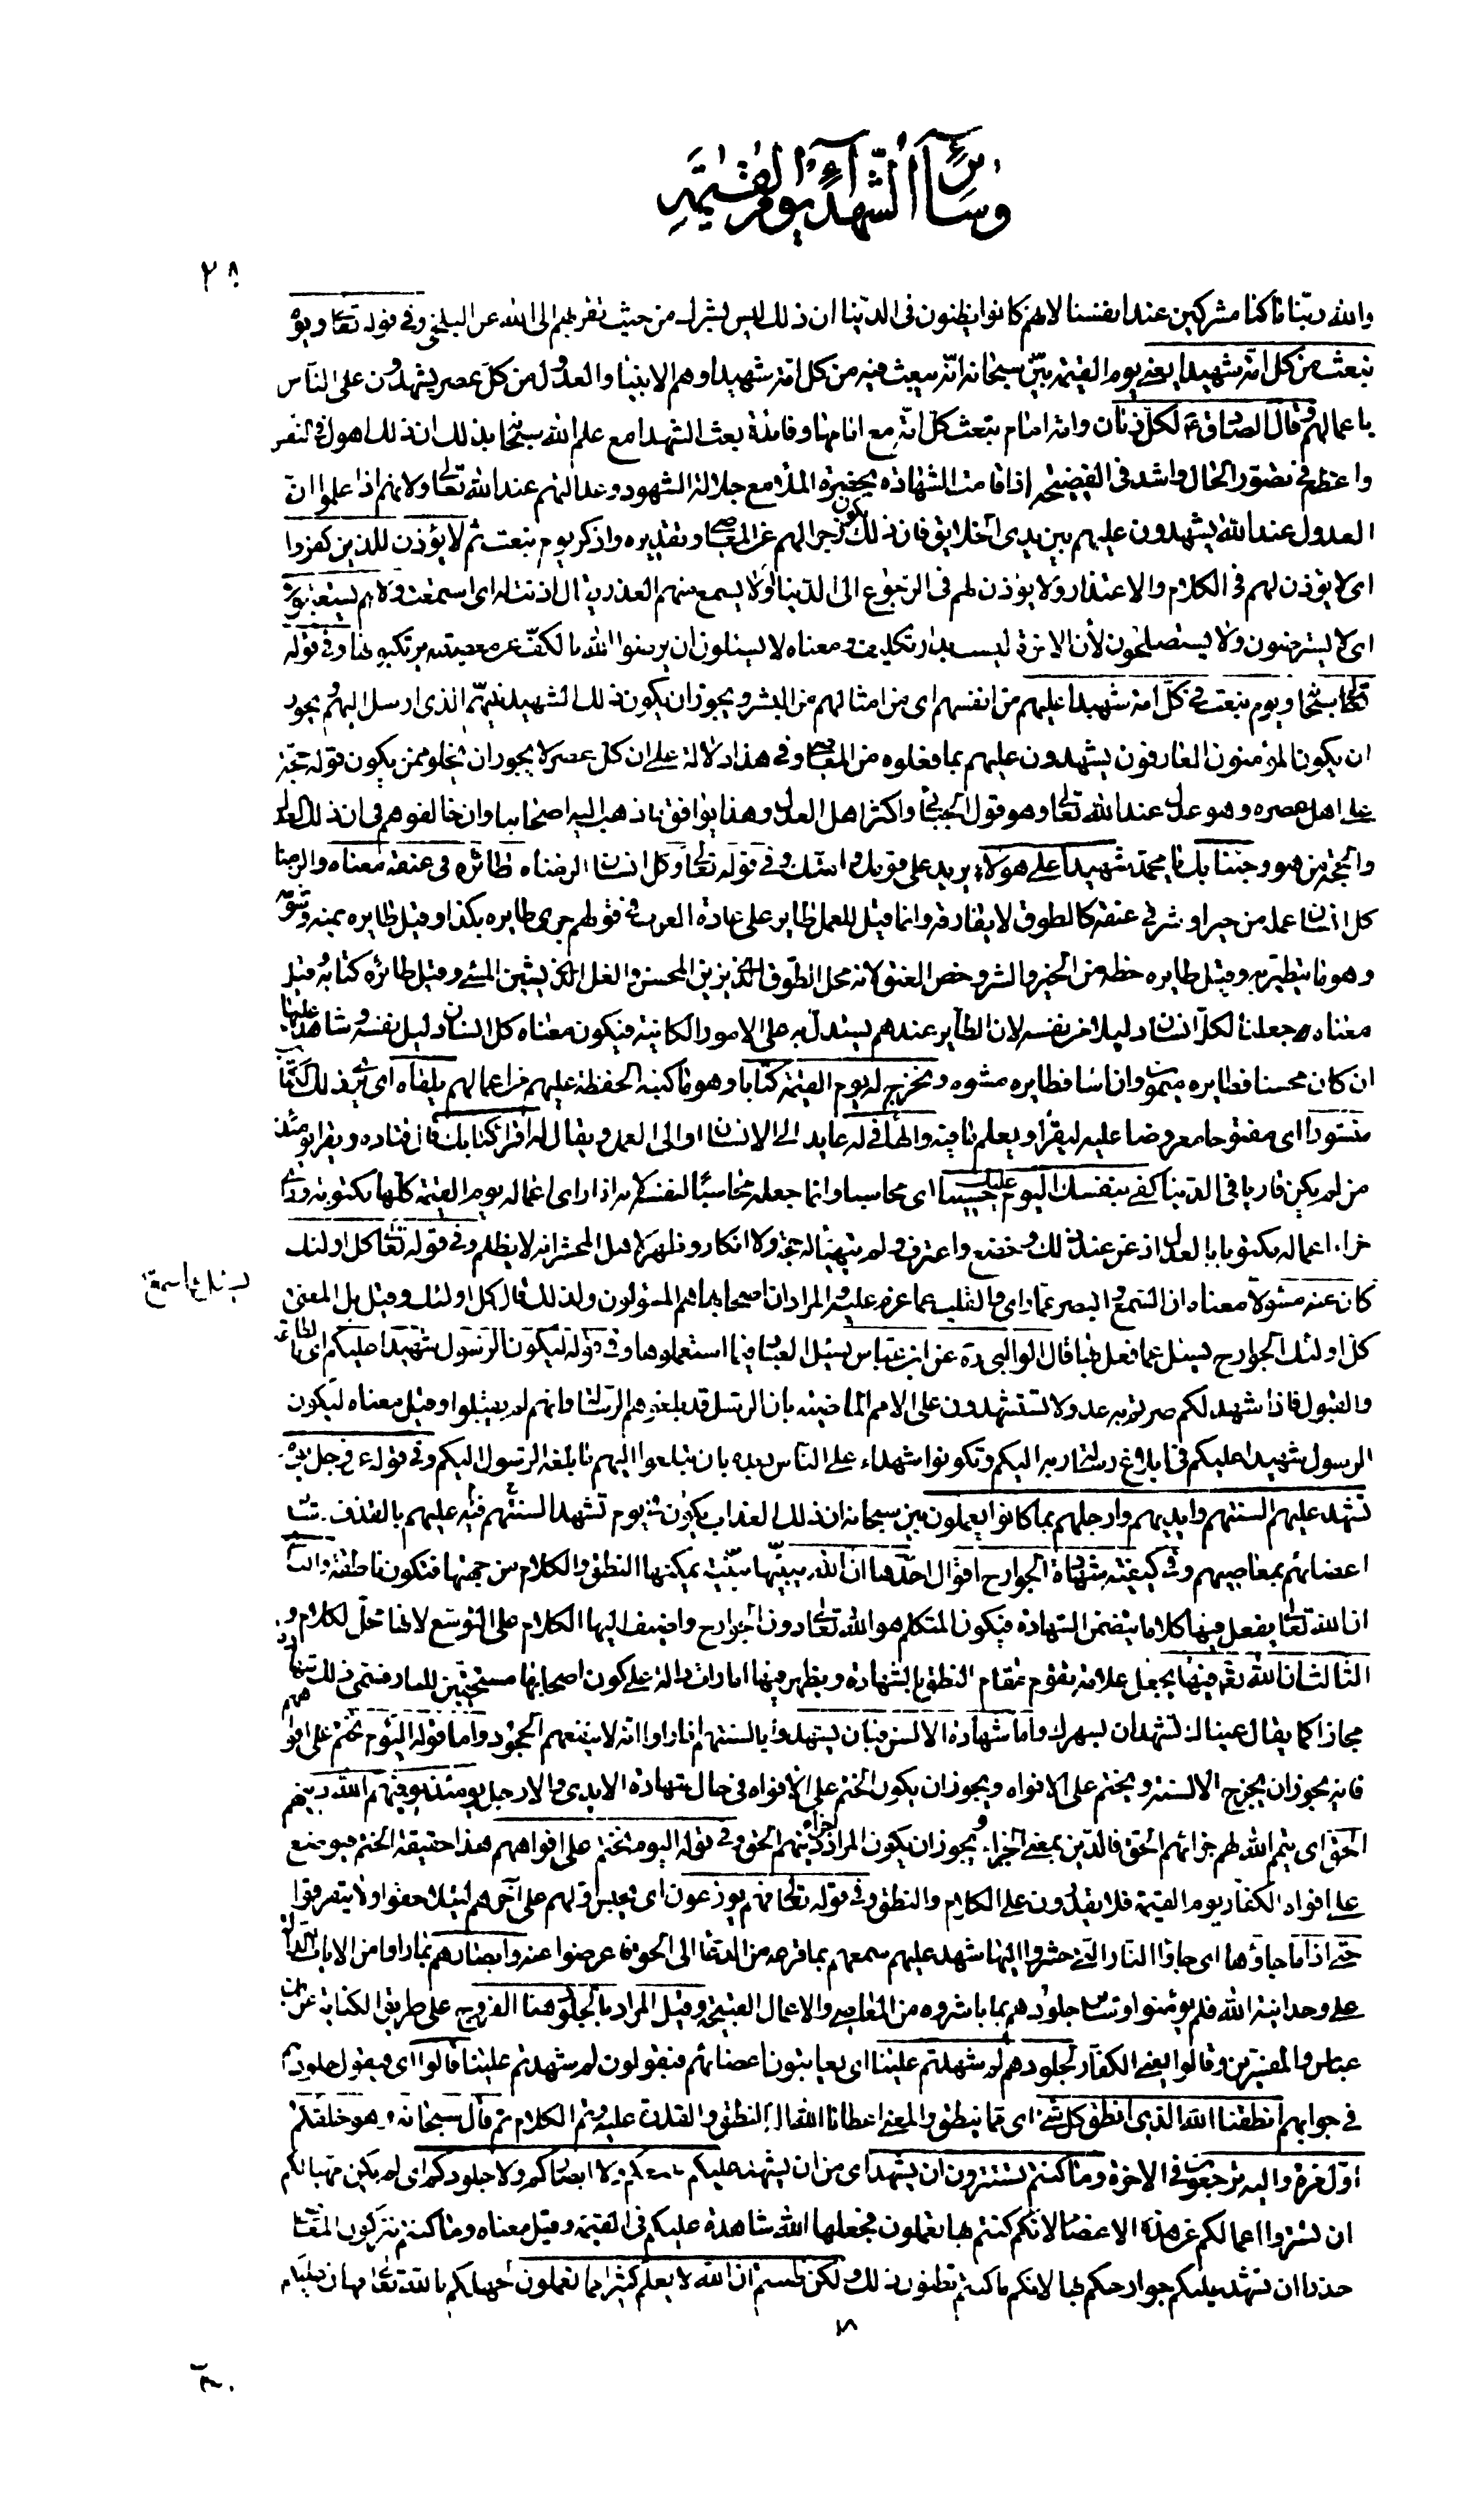 وسائر الشهداء يوم القيمة
٢٨
والله ربنا ما كنا مشركين عند انفسنا لانهم كانوا يظنون فى الدنيا ان ذلك ليس بشرك من حيث تقربهم الى الله عن البلخى وفى قوله تعا ويوم
نبعث من كل امة شهيدا يعنى يوم القيمة بيّن سبحانه انه يبعث فيه من كل امة شهيدا وهم الانبياء والعدول من كل عصر يشهدون على الناس
باعمالهم وقال الصادق ع لكل زمان وامة امام تبعث كل امة مع امامها وفائدة بعث الشهدا مع علم الله سبحانه بذلك ان ذلك اهول فى النفس
واعظم فى تصور الحال واشد فى الفضيحة اذا قامت الشهادة بحضرة الملأ مع جلالة الشهود وعدالتهم عند الله تعالى ولانهم اذا علموا ان
العدول عند الله يشهدون عليهم بين يدى الخلايق فان ذلك يكون زجرا لهم عن المعاصى وتقديره واذكر يوم نبعث ثم لا يؤذن للذين كفروا
اى لا يؤذن لهم فى الكلام والاعتذار ولا يؤذن لهم فى الرجوع الى الدنيا او لا يسمع منهم العذر يقال اذنت له اى استمعت ولا هم يستعتبون
اى لا يسترضون ولا يستصلحون لأن الاخرة ليست بدار تكليف ومعناه لا يسئلون ان يرضوا الله بالكف عن معصيته يرتكبونها وفى قوله
ويوم نبعث فى كل امة شهيدا عليهم من انفسهم اى من امثالهم من البشر ويجوز ان يكون ذلك الشهيد نبيهم الذى ارسل اليهم ويجوز
ان يكون المؤمنون العارفون يشهدون عليهم بما فعلوه من المعاصى وفى هذا دلالة على ان كل عصر لا يجوز ان يخلو ممن يكون قوله حجة
على اهل عصره وهو عدل عند الله تعالى وهو قول الجبائى واكثر اهل العدل وهذا يوافق ما ذهب اليه اصحابنا وان خالفوهم فى ان ذلك العدل
والحجة من هو وجئنا بك يا محمد شهيدا على هؤلاء يريد على قومك وامتك وفى قوله تعالى وكل انسان الزمناه طائره فى عنقه معناه والزمنا
كل انسان عمله من خير او شر فى عنقه كالطوق لا يفارقه وانما قيل للعمل طاير على عادة العرب فى قولهم جرى طايره بكذا وقيل طايره يمنه وشومه
وهو ما يتطير به وقيل طايره حظه من الخير والشر وخص العنق لانه محل الطوق الذى يزين المحسن والغل الذى يشين المسئ وقيل طائره كتابه وقيل
معناه جعلنا لكل انسان دليلا من نفسه لان الطاير عندهم يستدل به على الامور الكاينة فيكون معناه كل انسان دليل نفسه وشاهد عليها
ان كان محسنا فطايره ميمون وان اسا فطايره مشوم ونخرج له يوم القيمة كتابا وهو ما كتبه الحفظة عليهم من اعمالهم يلقاه اى يرى ذلك الكتاب
منشورا اى مفتوحا معروضا عليه ليقرأ ويعلم ما فيه والهاء فى له عايد الى الانسان او الى العمل ويقال له اقرأ كتابك قال قتاده ويقرا يومئذ
من لم يكن قاريا فى الدنيا كفى بنفسك اليوم عليك حسيبا اى محاسبا وانما جعله محاسبا لنفسه لانه اذا راى اعماله يوم القيمة كلها مكتوبة وراى
جزاء اعماله مكتوبا بالعدل اذعن عند ذلك وخضع واعترف ولم يتهيأ له حجة ولا انكار وظهر لاهل المحشر انه لا يظلم وفى قوله تعا كل اولئك
كان عنه مسئولا معناه ان السمع والبصر عما راى والقلب عما عزم عليه والمراد ان اصحابها هم المسئولون ولذلك قال كل اولئك وقيل بل المعنى
كل اولئك الجوارح يسئل عما فعل بها قال الوالبى عن ابن عباس يسئل العباد فيما استعملوها وفى قوله ليكون الرسول شهيدا عليكم اى بالطاعة
والقبول فاذا شهد لكم صرتم به عدولا تستشهدون على الامم الماضية بان الرسل قد بلغوهم الرسالة وانهم لم يقبلوا وقيل معناه ليكون
الرسول شهيدا عليكم فى ابلاغ رسالة ربه اليكم وتكونوا شهداء على الناس بعده بان تبلغوا اليهم ما بلغه الرسول اليكم وفى قوله عز وجل يوم
تشهد عليهم السنتهم وايديهم وارجلهم بما كانوا يعملون بين سبحانه ان ذلك العذاب يكون فى يوم تشهد السنتهم فيه عليهم بالقذف وساير
اعضائهم بمعاصيهم وفى كيفية شهادة الجوارح اقوال احدها ان الله يبنيها بنية يمكنها النطق والكلام من جهتها فتكون ناطقة والثانى
ان الله تعالى يفعل فيها كلاما يتضمن الشهادة فيكون المتكلم هو الله تعالى دون الجوارح واضيف اليها الكلام على التوسع لانها محل الكلام و
الثالث ان الله تعالى يجعل فيها علامة تقوم مقام النطق بالشهادة ويظهر فيها امارات دالة على كون اصحابها مستحقين للنار فسمى ذلك شهادة
مجازا كما يقال عيناك تشهدان بسهرك واما شهادة الالسن فبان يشهدوا بالسنتهم اذا راوا انه لا ينفعهم الجحود واما قوله اليوم نختم على افواههم
فانه يجوز ان يخرج الالسنة ويختم على الافواه ويجوز ان يكون الختم على الافواه فى حال شهادة الايدى والارجل يومئذ يوفيهم الله دينهم
الحق اى يتم الله لهم جزائهم الحق فالدين بمعنى الجزاء ويجوز ان يكون المراد جزاء دينهم الحق وفى قوله اليوم نختم على افواههم هذا حقيقة الختم فيوضع
على افواه الكفار يوم القيمة فلا يقدرون على الكلام والنطق وفى قوله تعالى فهم يوزعون اى يحبس اولهم على آخرهم ليتلاحقوا ولا يتفرقوا
حتى اذا ما جاؤها اى جاؤا النار التى حشروا اليها شهد عليهم سمعهم بما قرعه من الدعاء الى الحق فاعرضوا عنه وابصارهم بما راوا من الايات الدالة
على وحدانية الله فلم يؤمنوا وساير جلودهم بما باشروه من المعاصى والاعمال القبيحة وقيل المراد بالجلود هنا الفروج على طريق الكناية عن ابن
عباس والمفسرين وقالوا يعنى الكفار لجلودهم لم شهدتم علينا اى يعاتبون اعضائهم فيقولون لم شهدتم علينا قالوا اى فيقول جلودهم
فى جوابهم انطقنا الله الذى انطق كل شئ اى مما ينطق والمعنى اعطانا الله النطق والقدرة عليه وتم الكلام ثم قال سبحانه وهو خلقكم
اول مرة واليه ترجعون فى الاخرة وما كنتم تستترون ان يشهد اى من ان يشهد عليكم سمعكم ولا ابصاركم ولا جلودكم اى لم يكن مهيا لكم
ان تستروا اعمالكم عن هذه الاعضاء لانكم كنتم بها تعملون فجعلها الله شاهدة عليكم فى القيمة وقيل معناه وما كنتم تتركون المعاصى
حذرا ان تشهد عليكم جوارحكم بها لانكم ما كنتم تظنون ذلك ولكن ظننتم ان الله لا يعلم كثيرا مما تعملون لجهلكم بالله تعالى